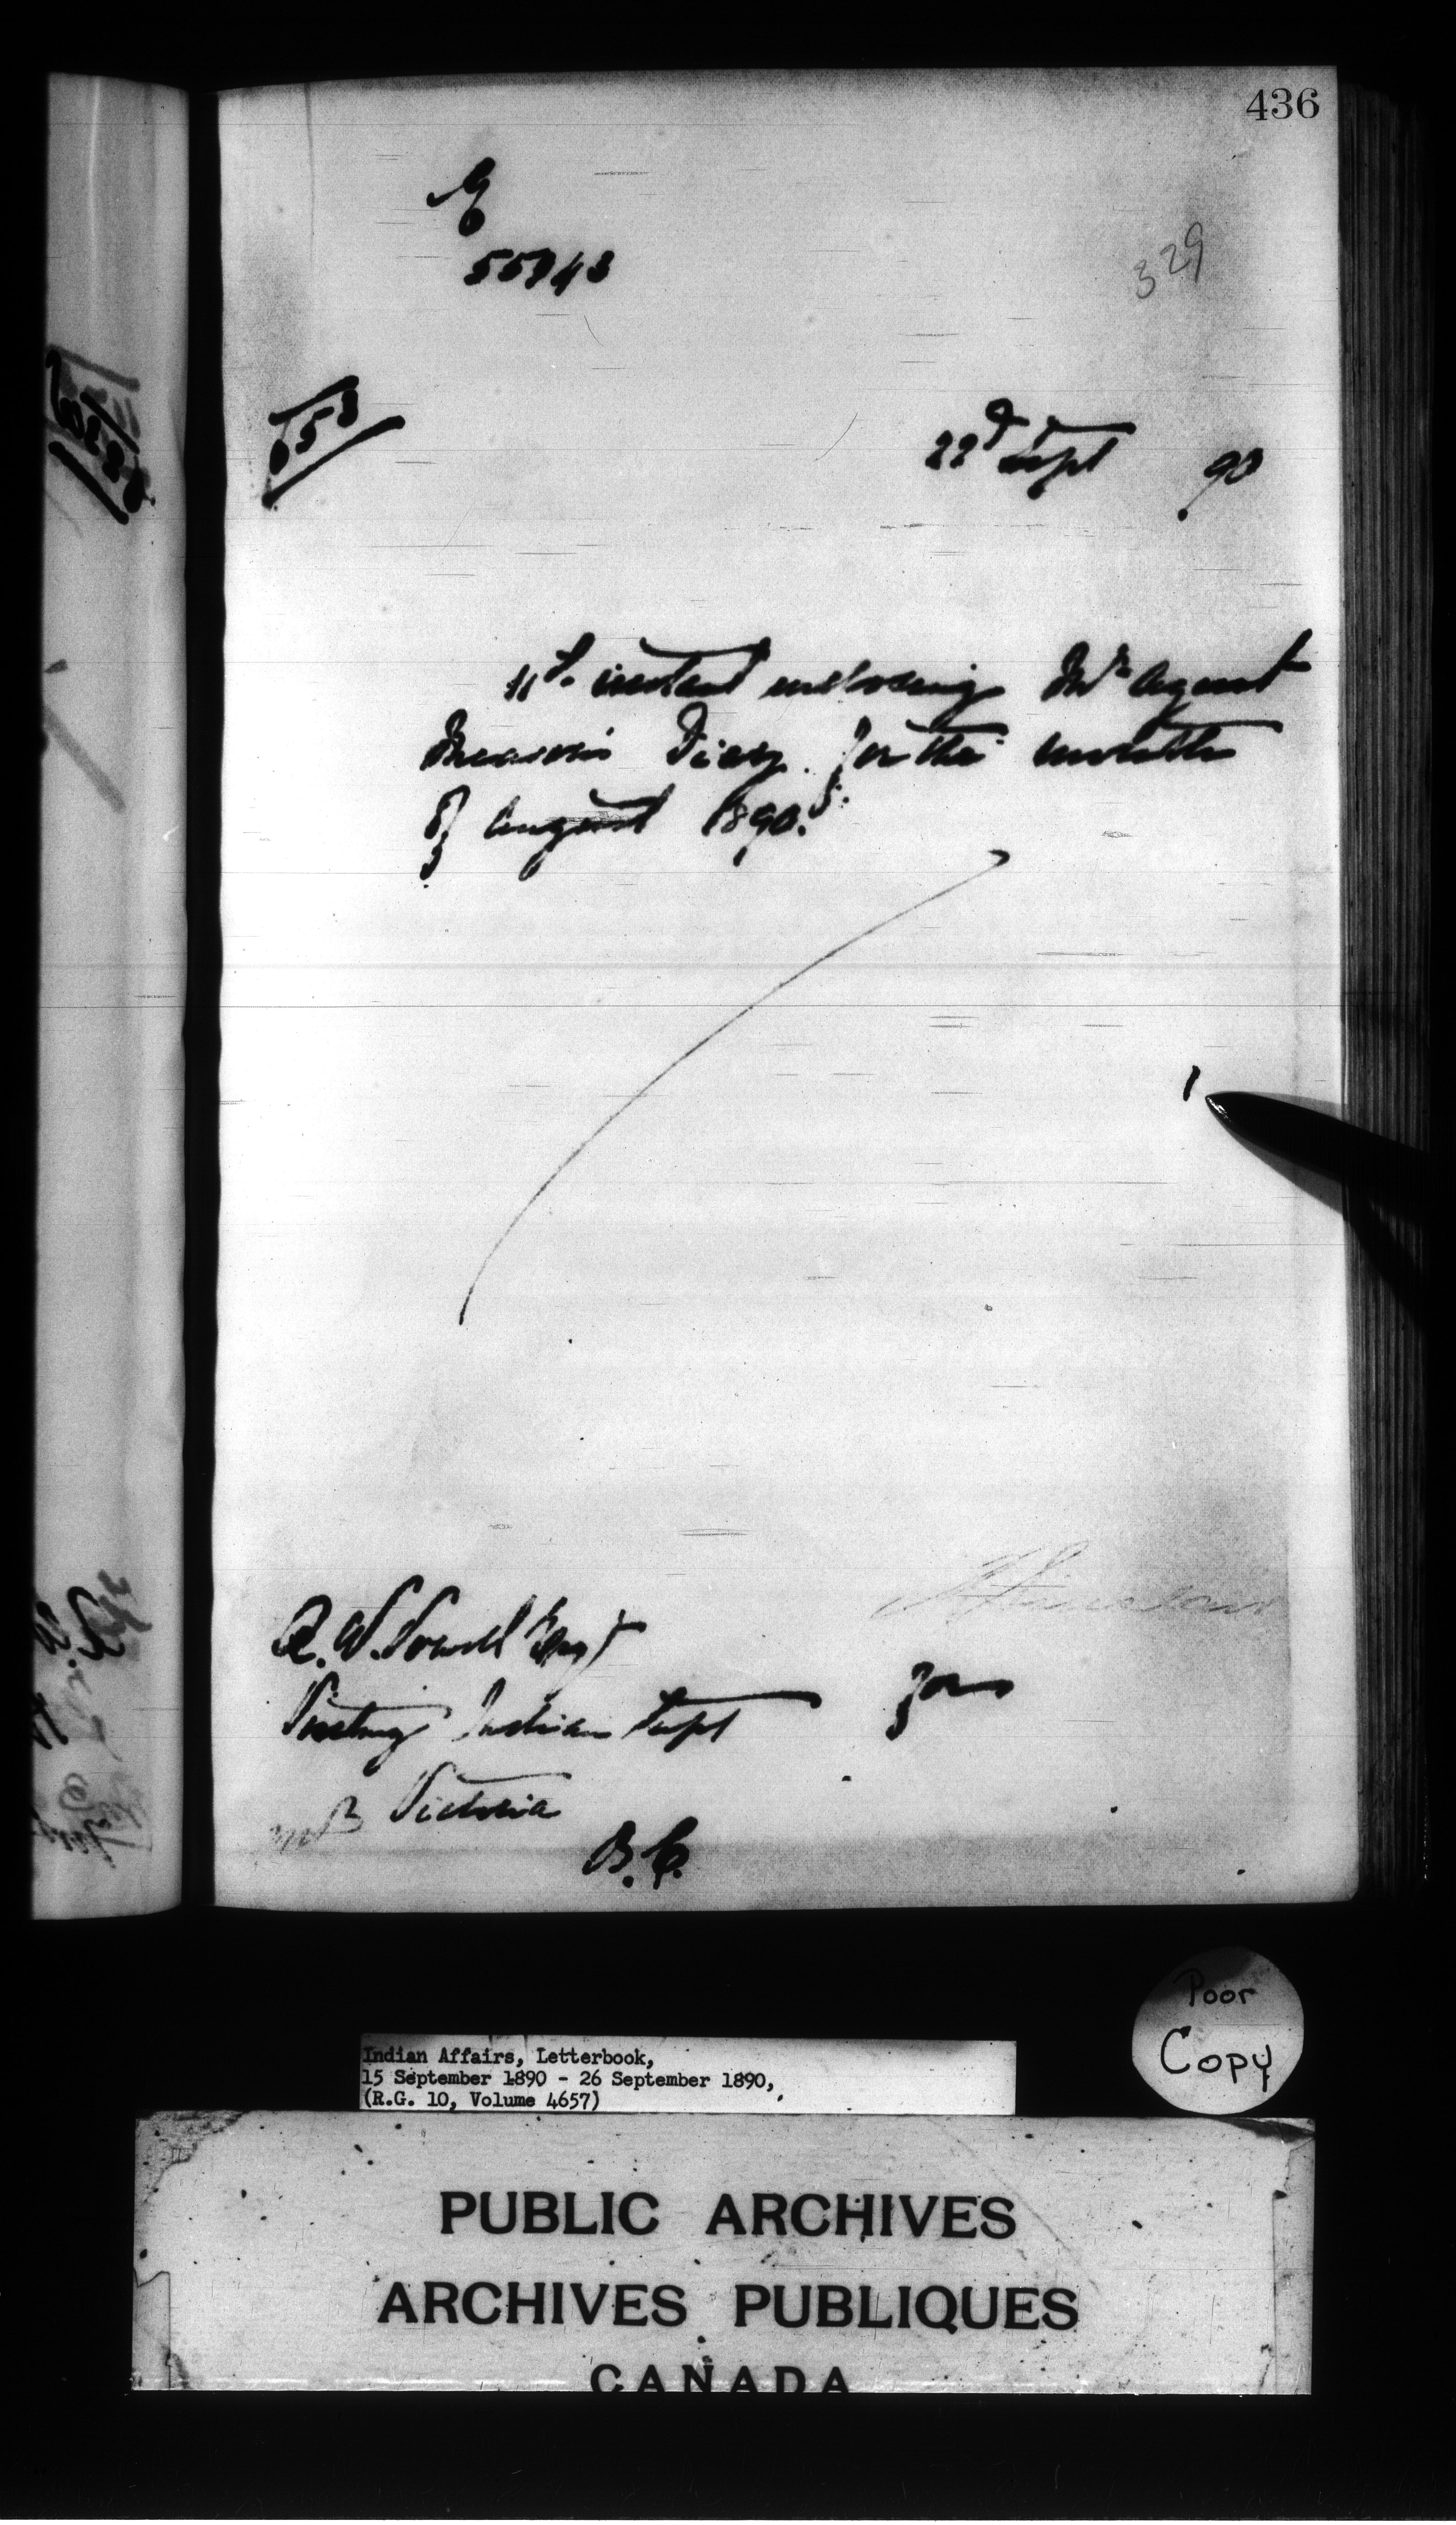 436
329
22d Sept 90
11th instant enclosing Mr Agent
Diary for the month
of August 1890.
for
Visiting Indian Supt
Victoria
B.C.
Poor
Copy
Indian Affairs, Letterbook,
15 September 1890 - 26 September 1890,
(R.G. 10, Volume 4657)
PUBLIC ARCHIVES
ARCHIVES PUBLIQUES
CANADA